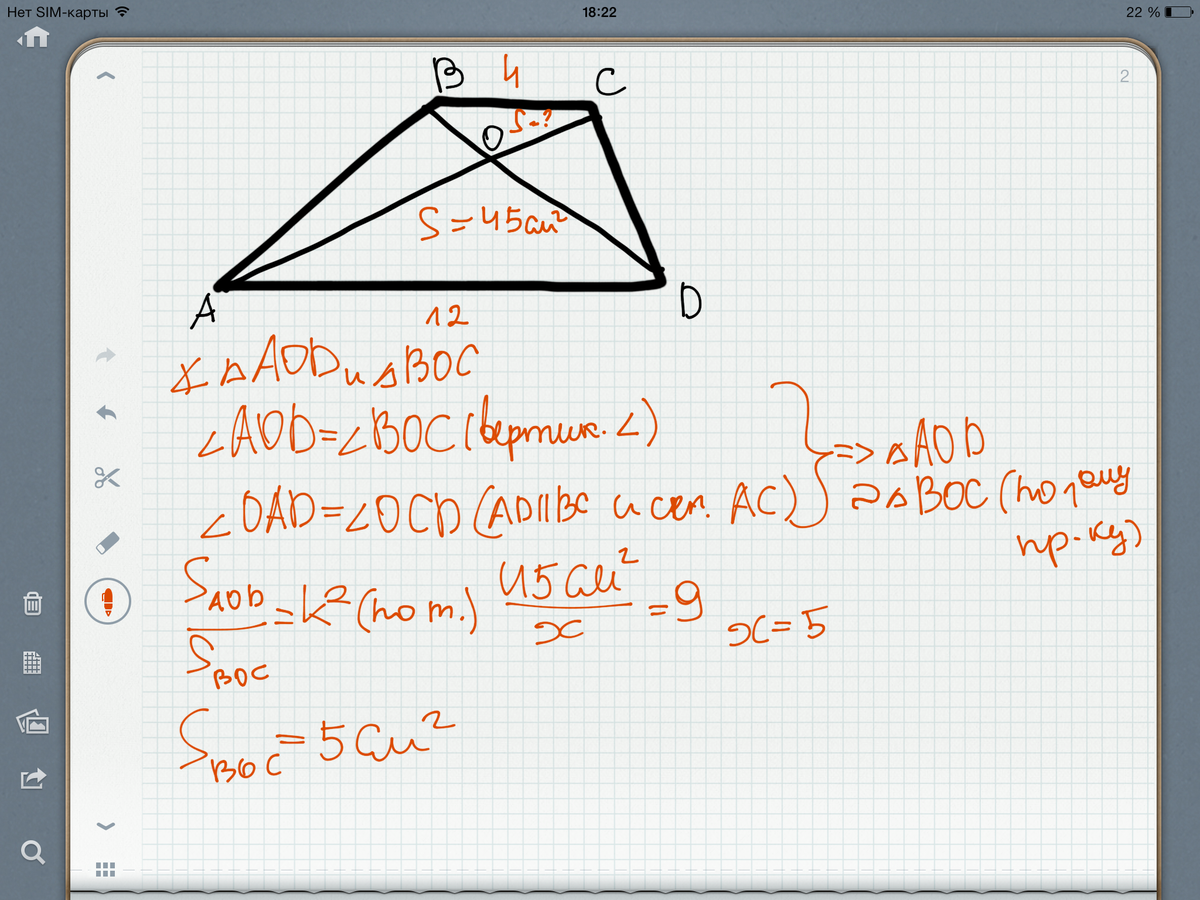 Нет SIM-карты 18:22 22 %
2
B 4 C
O S-?
S=45см²
A D
12
∡ △AOD и △BOC
∠AOD=∠BOC (вертик. ∠)
∠OAD=∠OCD (AD||BC и сек. AC)
=> △AOD
△BOC (по 1ому
пр-ку)
S_AOD / S_BOC = k² (по т.) 45см²/x = 9 x=5
S_BOC = 5см²